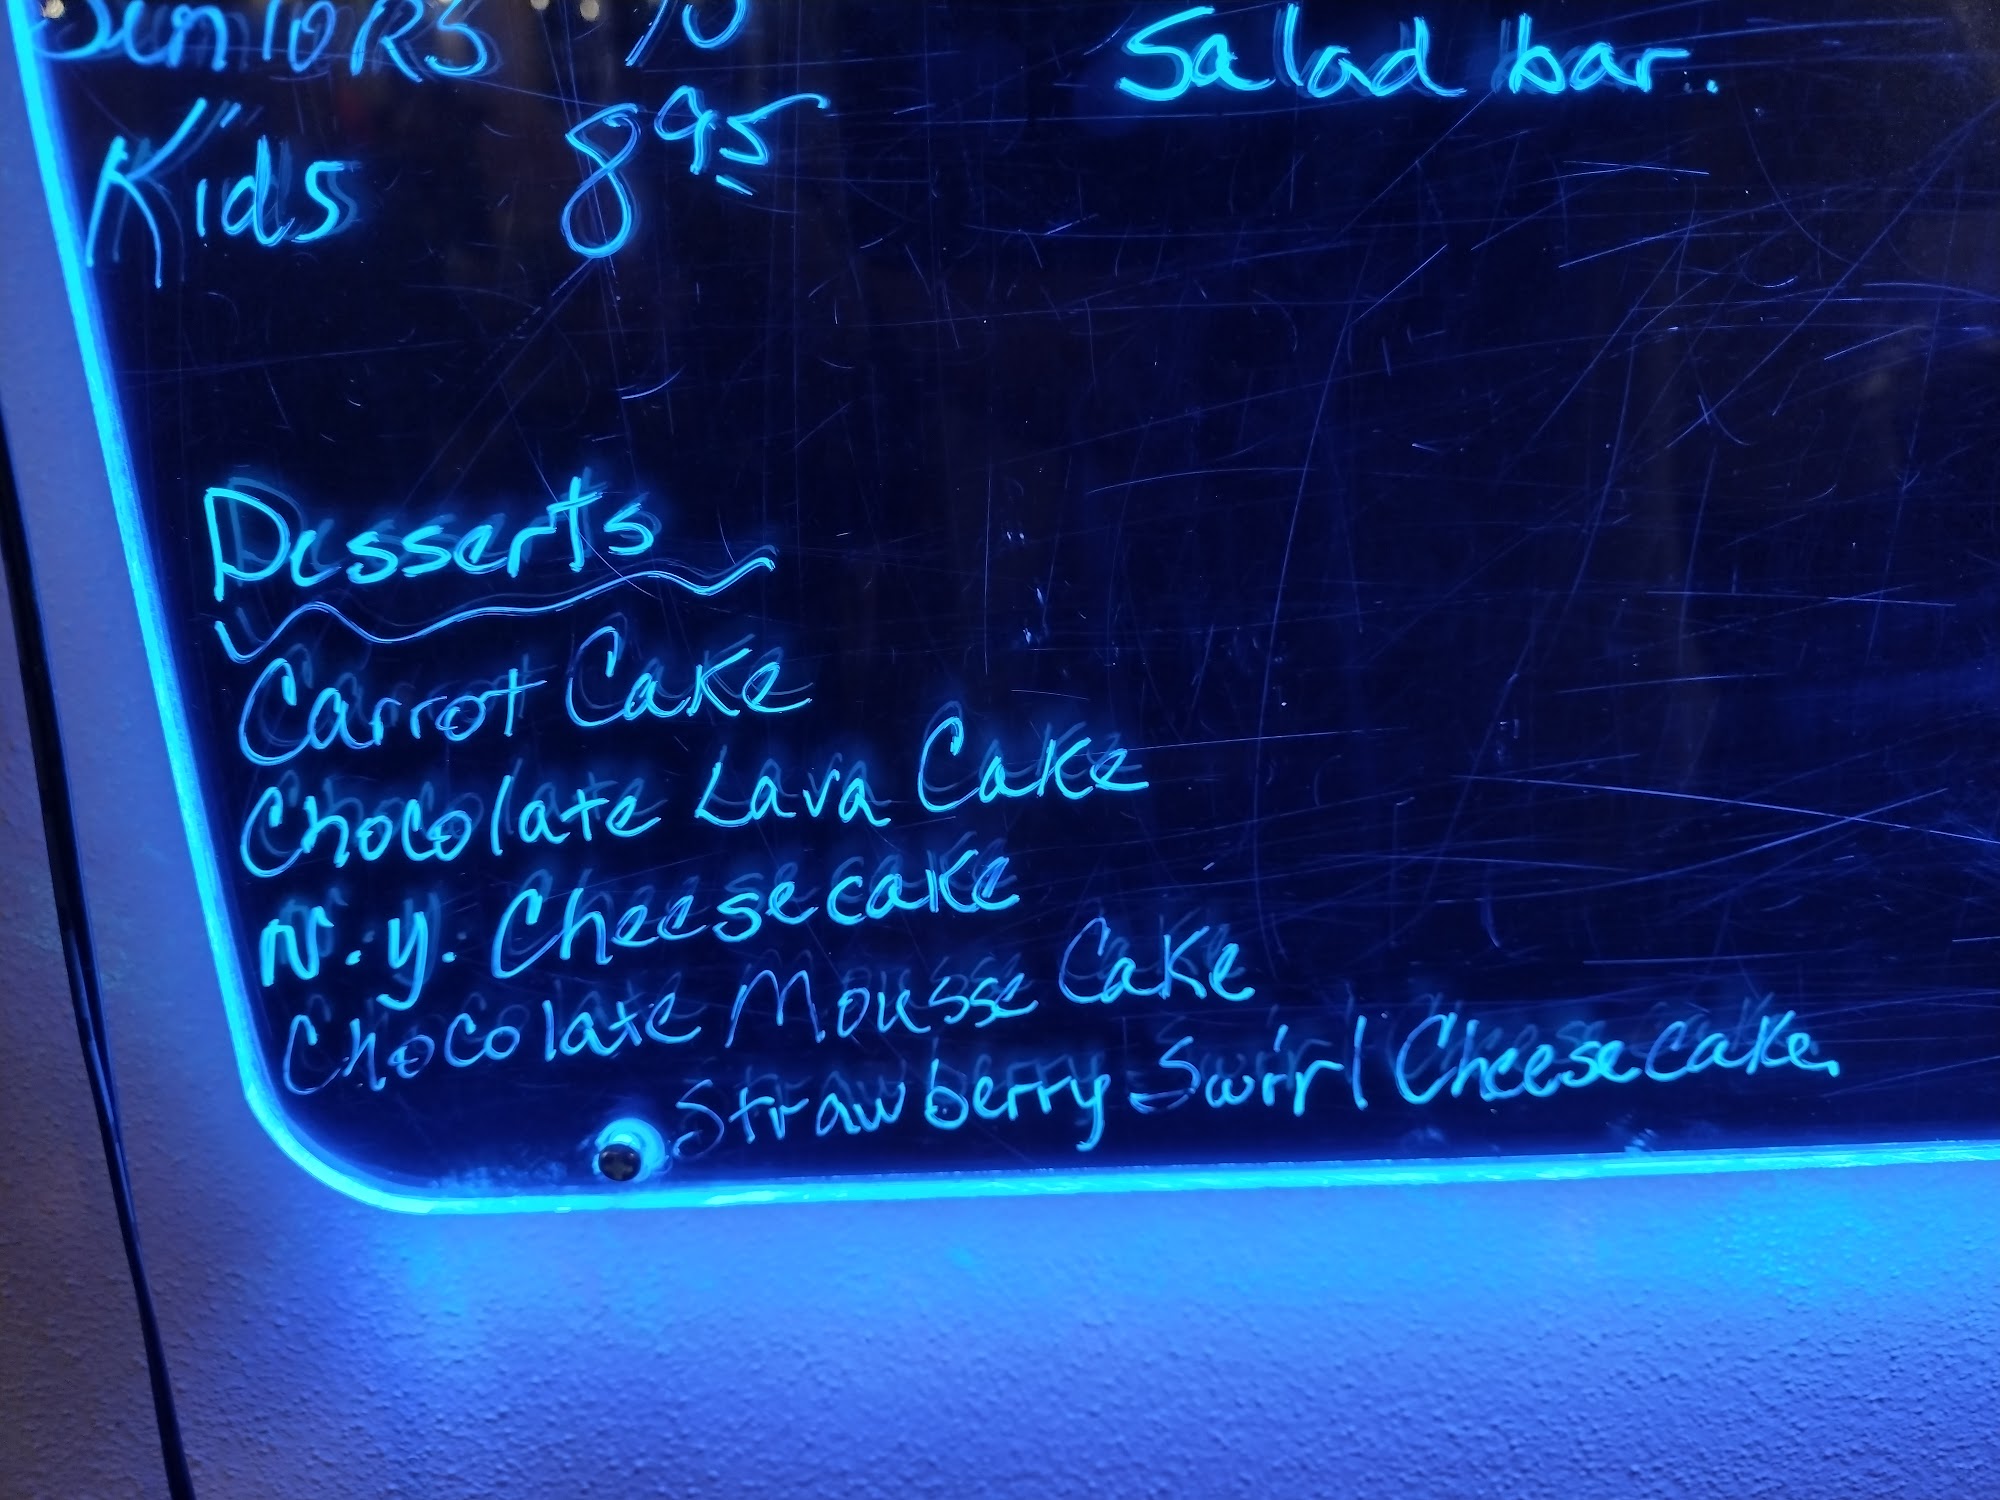 Seniors
Salad bar.
Kids 8 95
Desserts
Carrot Cake
Chocolate Lava Cake
N.Y. Cheesecake
Chocolate Mousse Cake
Strawberry Swirl Cheesecake